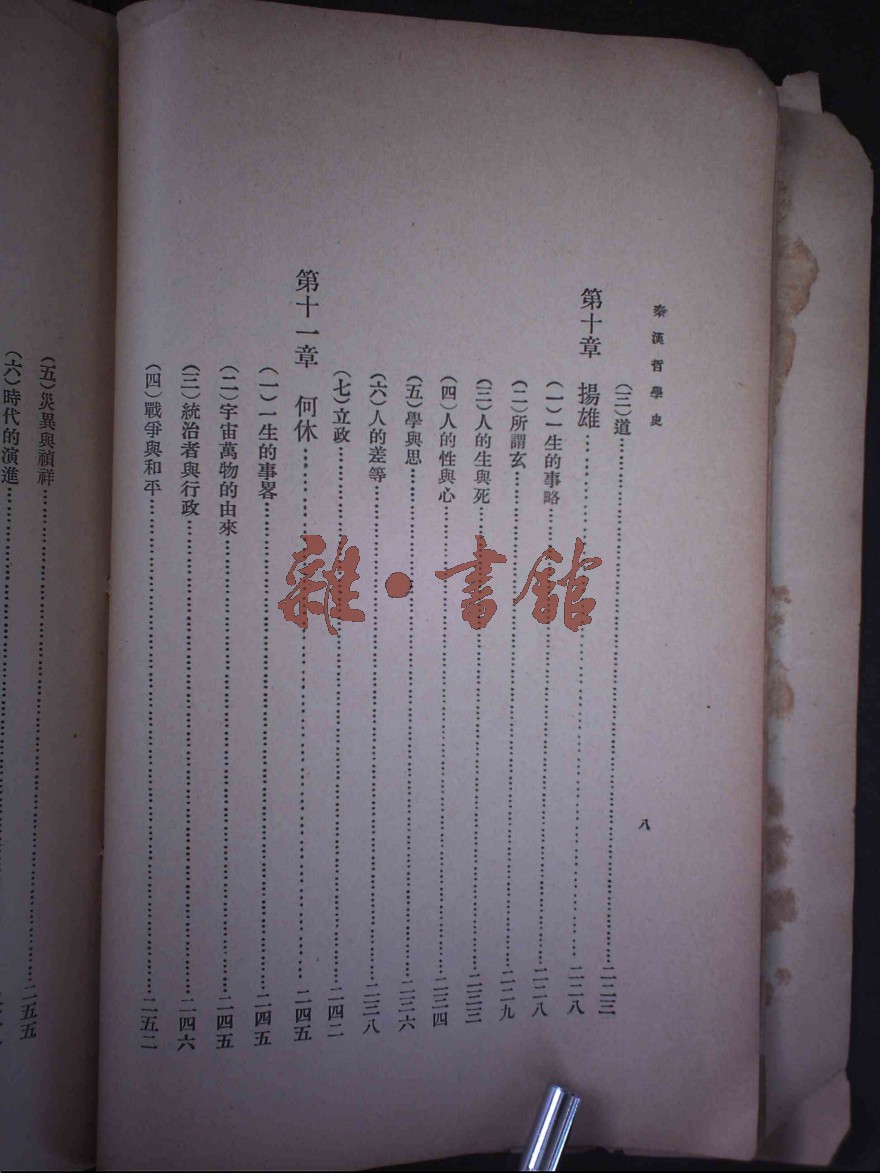 秦漢哲學史
八
(三)道……二二三
第十章　揚雄……二二八
(一)一生的事略……二二八
(二)所謂玄……二二九
(三)人的生與死……二三三
(四)人的性與心……二三四
(五)學與思……二三六
(六)人的差等……二三八
(七)立政……二四二
第十一章　何休……二四五
(一)一生的事畧……二四五
(二)宇宙萬物的由來……二四五
(三)統治者與行政……二四六
(四)戰爭與和平……二五二
(五)災異與禎祥……二五五
(六)時代的演進……
雜·書館